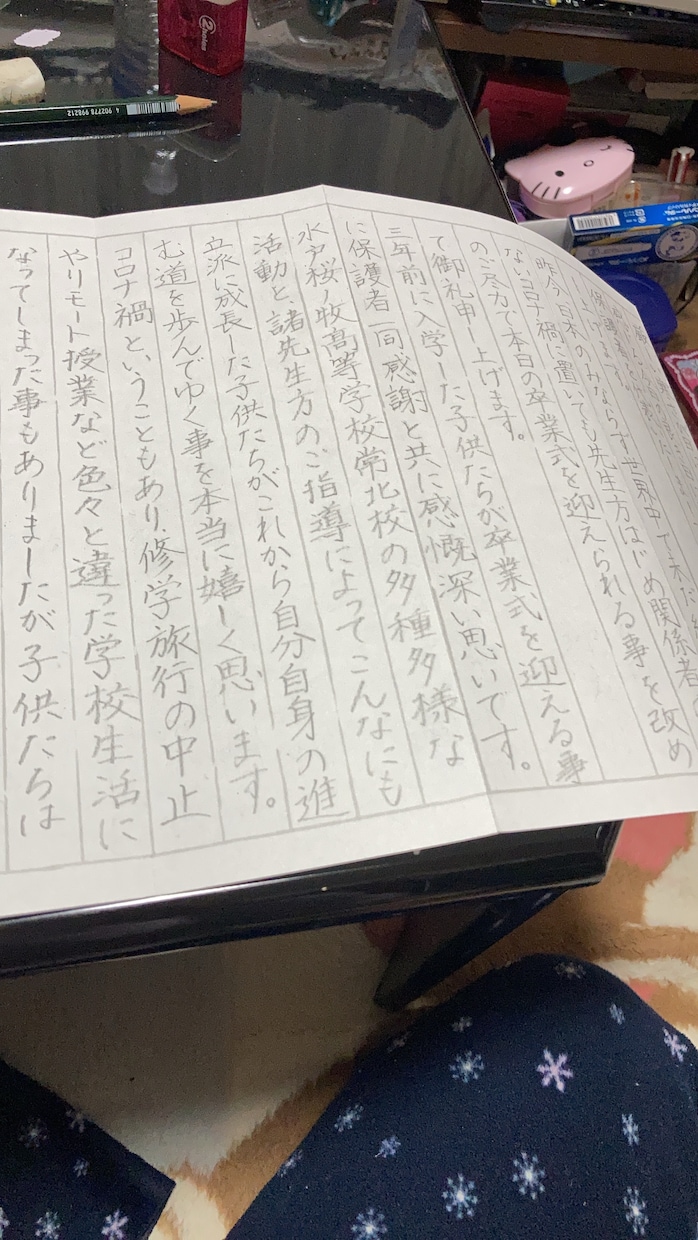 昨今、日本のみならず世界中で
ないコロナ禍に置いても先生方はじめ関係者
のご尽力で本日の卒業式を迎えられる事を改め
て御礼申し上げます。
三年前に入学した子供たちが卒業式を迎える事
に保護者一同感謝と共に感慨深い思いです。
水戸桜ノ牧高等学校常北校の多種多様な
活動と、諸先生方のご指導によってこんなにも
立派に成長した子供たちがこれから自分自身の進
む道を歩んでゆく事を本当に嬉しく思います。
コロナ禍ということもあり、修学旅行の中止
やリモート授業など色々と違った学校生活に
なってしまった事もありましたが子供たちは
4 902778 998212